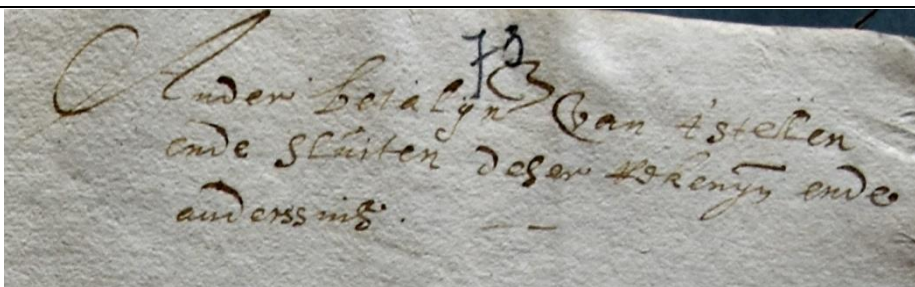 73
Ander betalyng van t'stellen
ende sluiten deser rekenyng ende
anderssins.